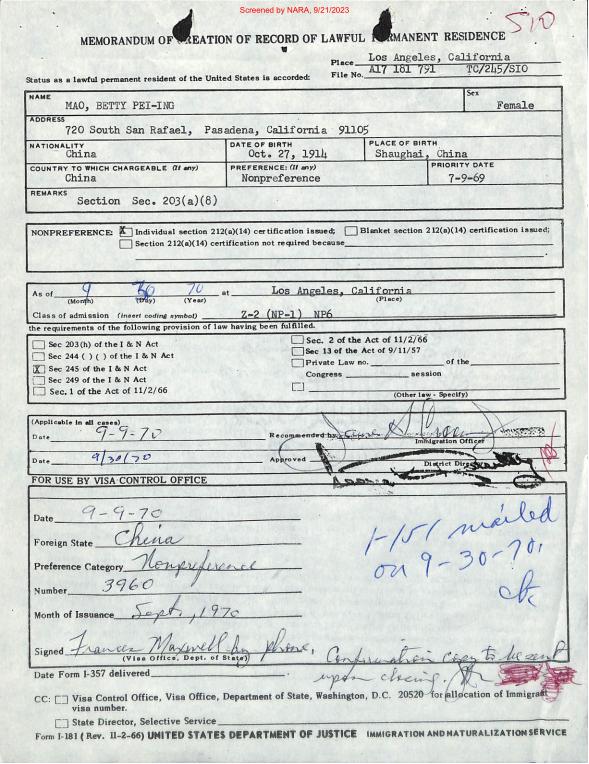 Screened by NARA, 9/21/2023
510
MEMORANDUM OF CREATION OF RECORD OF LAWFUL PERMANENT RESIDENCE
Place Los Angeles, California
Status as a lawful permanent resident of the United States is accorded: File No. A17 181 791 TC/245/SIO
NAME Sex
MAO, BETTY PEI-ING Female
ADDRESS
720 South San Rafael, Pasadena, California 91105
NATIONALITY DATE OF BIRTH PLACE OF BIRTH
China Oct. 27, 1914 Shaughai, China
COUNTRY TO WHICH CHARGEABLE (If any) PREFERENCE: (If any) PRIORITY DATE
China Nonpreference 7-9-69
REMARKS
Section Sec. 203(a)(8)
NONPREFERENCE: X Individual section 212(a)(14) certification issued; Blanket section 212(a)(14) certification issued;
Section 212(a)(14) certification not required because
As of 9 30 70 at Los Angeles, California
(Month) (Day) (Year) (Place)
Class of admission (insert coding symbol) Z-2 (NP-1) NP6
the requirements of the following provision of law having been fulfilled.
Sec 203(h) of the I & N Act
Sec 244 ( ) ( ) of the I & N Act
X Sec 245 of the I & N Act
Sec 249 of the I & N Act
Sec. 1 of the Act of 11/2/66
Sec. 2 of the Act of 11/2/66
Sec 13 of the Act of 9/11/57
Private Law no. of the
Congress session
(Other law - Specify)
(Applicable in all cases)
Date 9-9-70 Recommended by
Immigration Officer
Date 9/30/70 Approved
District Director
FOR USE BY VISA CONTROL OFFICE
Date 9-9-70
Foreign State China
Preference Category Nonpreference
Number 3960
Month of Issuance Sept., 1970
I-151 mailed
on 9-30-70.
Signed Frances Maxwell by phone.
(Visa Office, Dept. of State)
Confirmation copy to be sent
upon closing.
Date Form I-357 delivered
CC: Visa Control Office, Visa Office, Department of State, Washington, D.C. 20520 for allocation of Immigrant
visa number.
State Director, Selective Service
Form I-181 ( Rev. 11-2-66) UNITED STATES DEPARTMENT OF JUSTICE IMMIGRATION AND NATURALIZATION SERVICE